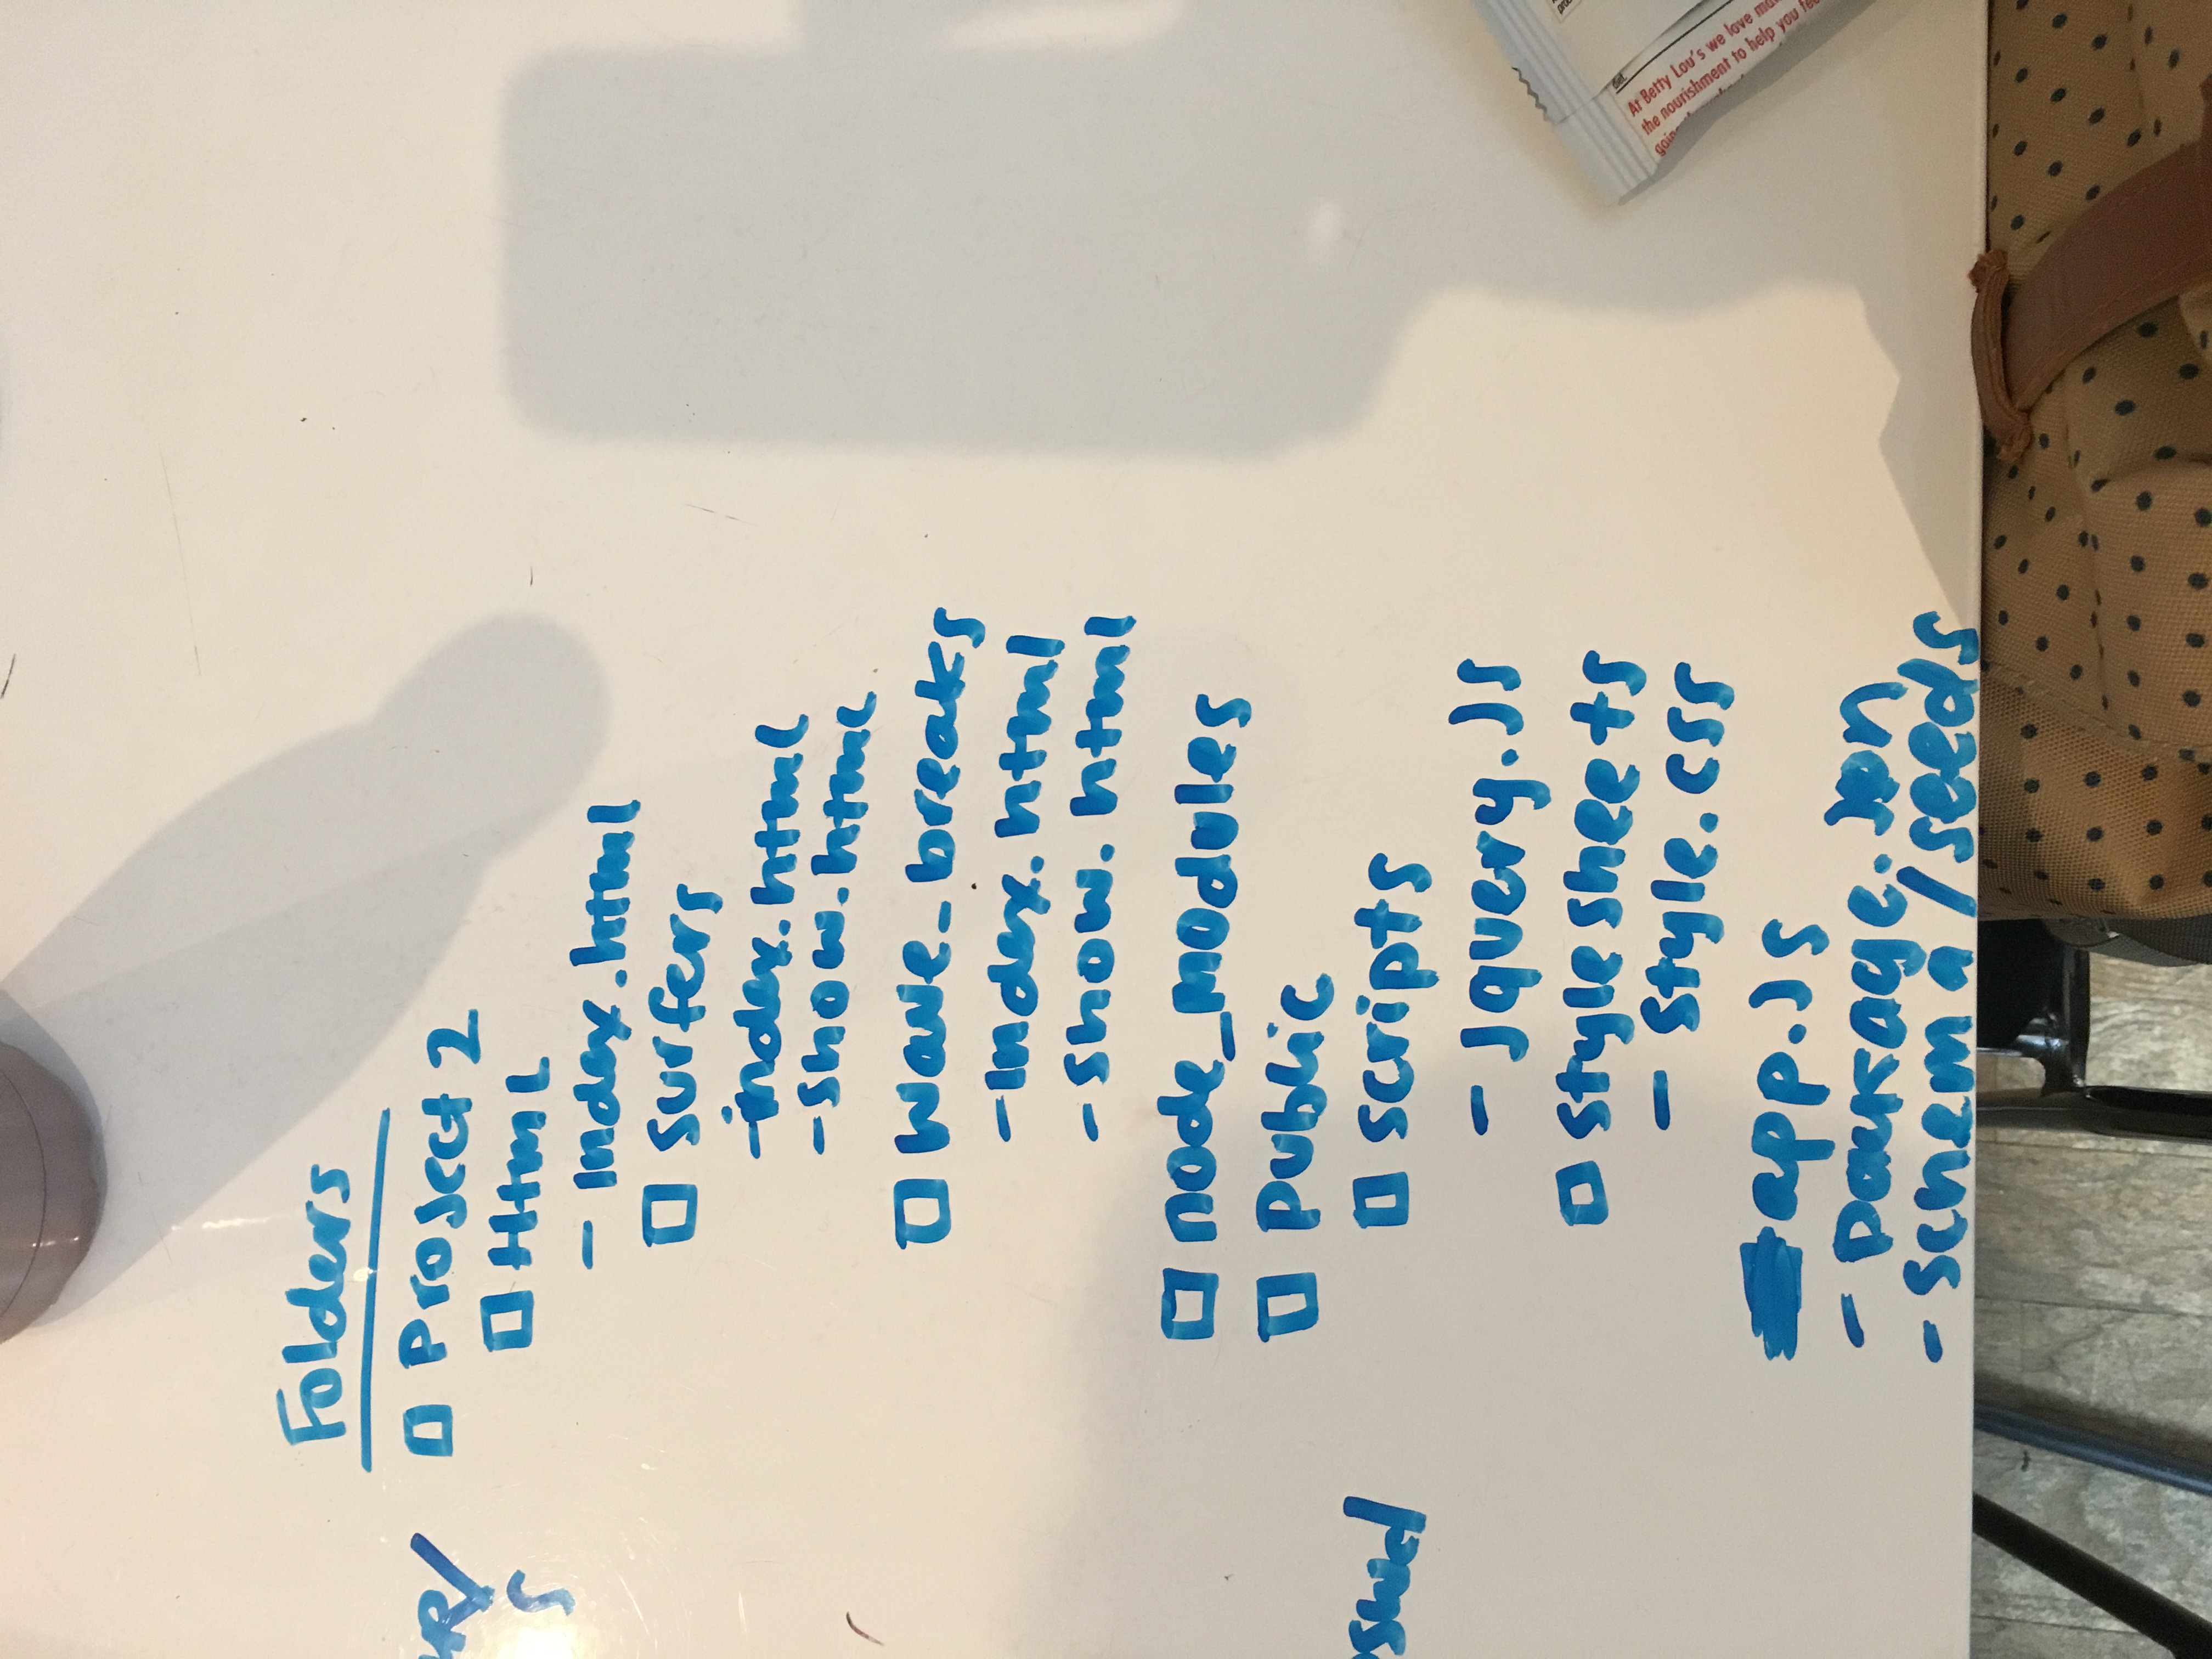 Folders
Project 2
Html
- Index.html
surfers
- index.html
- show.html
wave_breaks
- Index.html
- show.html
node_modules
Public
scripts
- jquery.js
stylesheets
- style.css
app.js
- Package.json
- schema/seeds
At Betty Lou's we love
the nourishment to help you